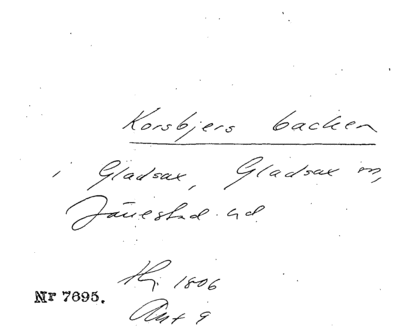 Korsbjers backen
i Gladsax, Gladsax sn,
Järrestad hd
Hj 1806
Nr 7695.
Akt 9